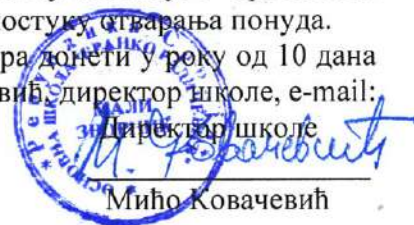 остуку отварања понуда.
ра донети у року од 10 дана
вић, директор школе, e-mail:
Директор школе
Мићо Ковачевић